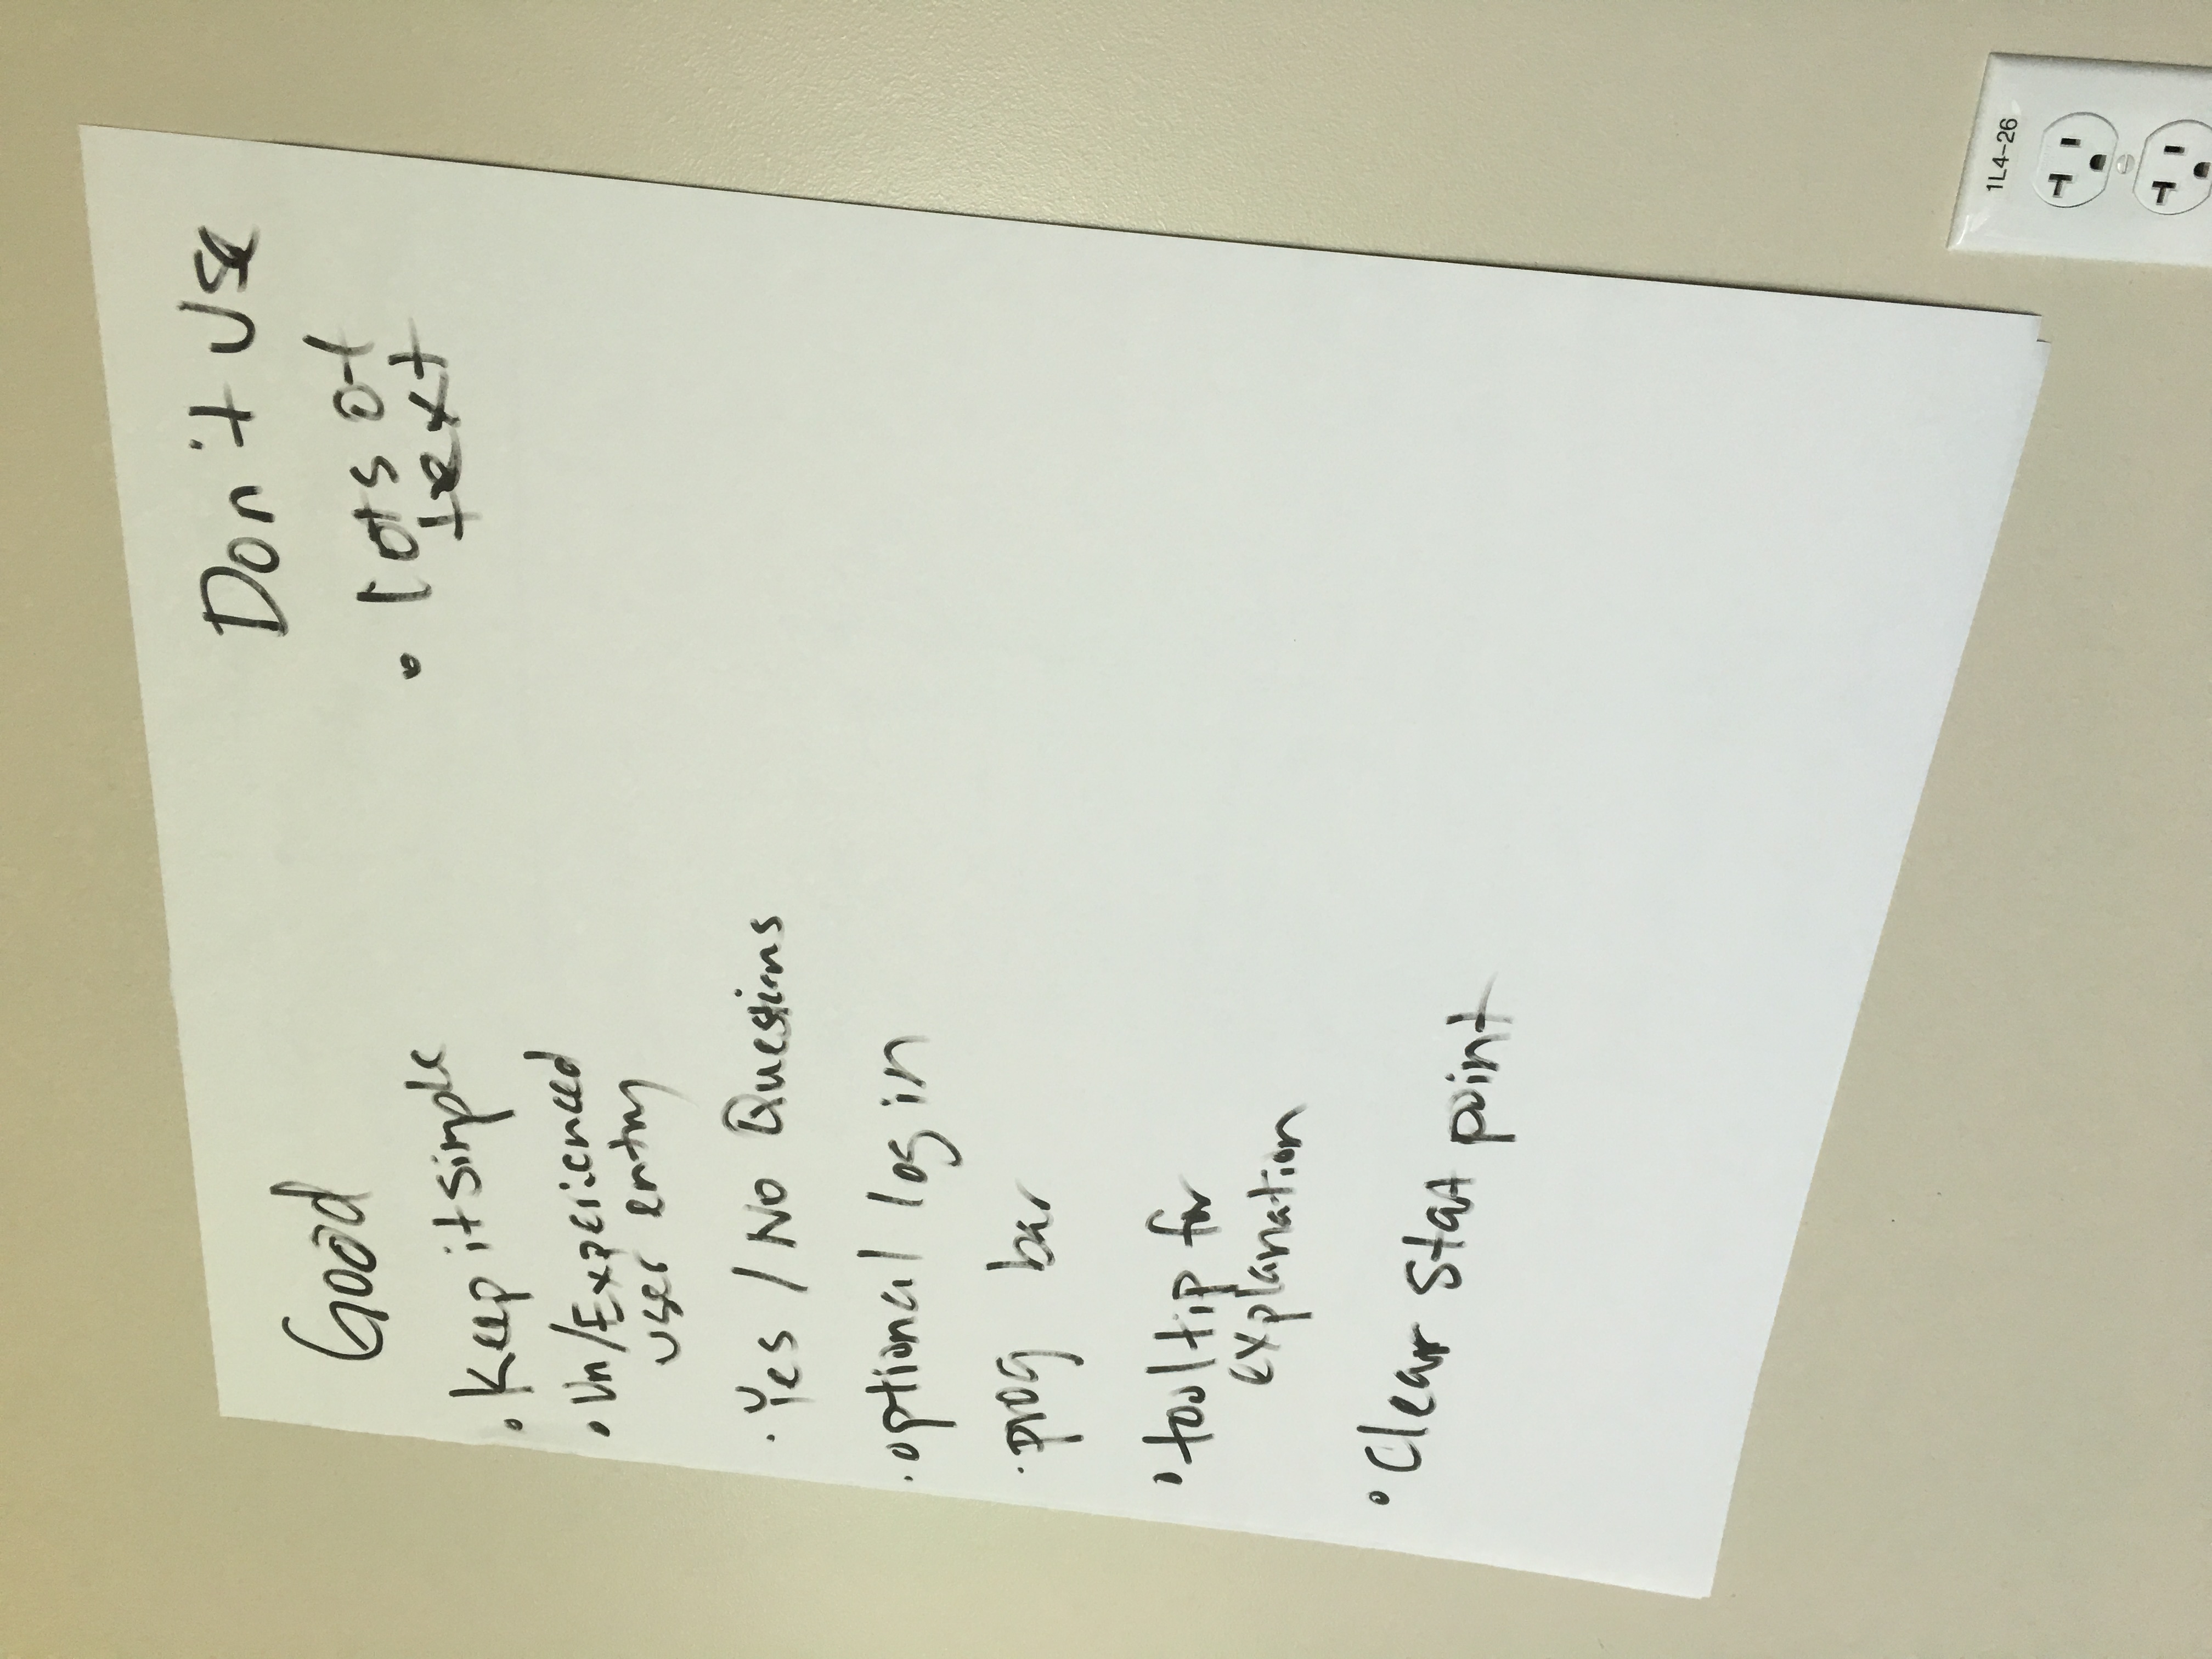 Good
• Keep it simple
• Un/Experienced
user entry
• Yes / No Questions
• optional log in
• prog bar
• tooltip for
explanation
• Clear Stat point
Don't Use
• lots of
text
1L4-26